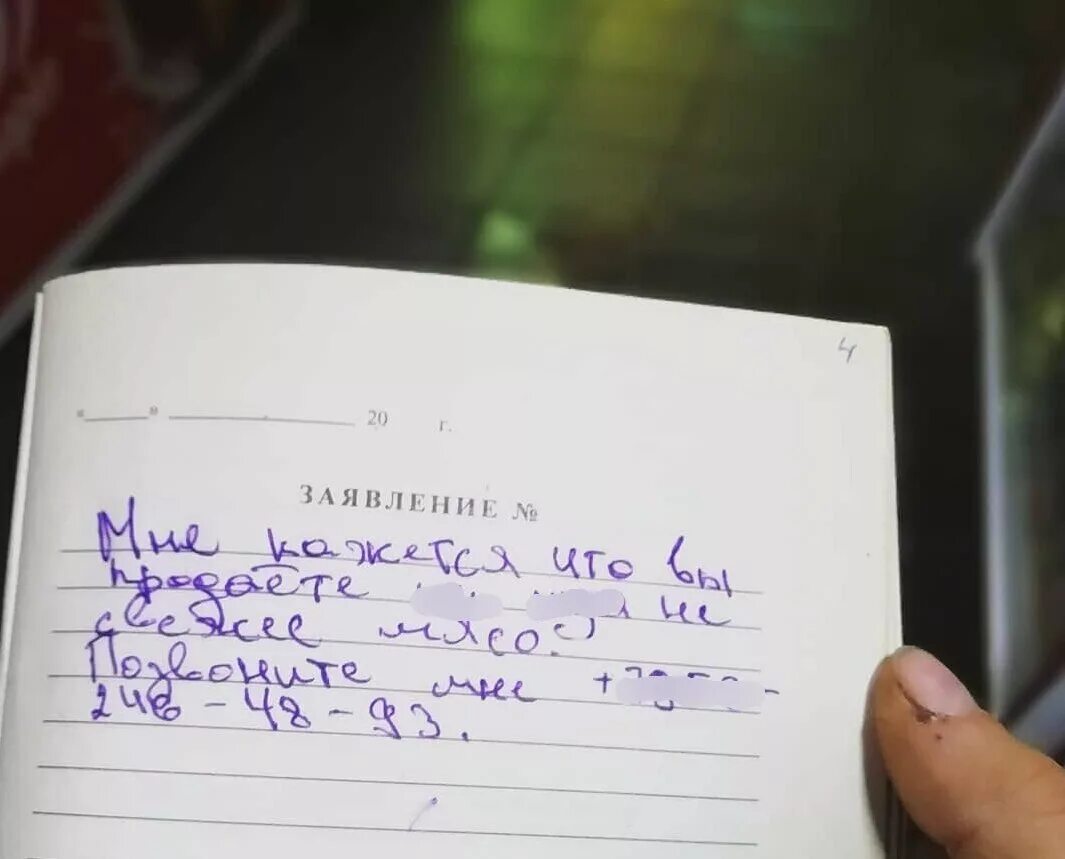 4
«____» ____________ 20    г.
ЗАЯВЛЕНИЕ №
Мне кажется что вы
продаёте не
свежее мясо.
Позвоните мне +
248-48-93.